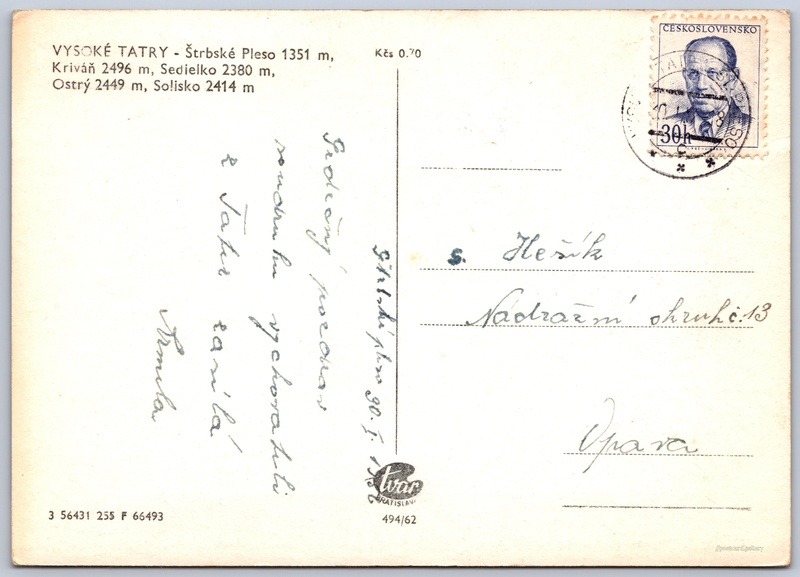 VYSOKÉ TATRY - Štrbské Pleso 1351 m,
Kriváň 2496 m, Sedielko 2380 m,
Ostrý 2449 m, Solisko 2414 m
Kčs 0.70
ČESKOSLOVENSKO
30h
Štrbské pleso 30. I.
Srdečný pozdrav
soudruhu vychovateli
z Tater zasílá
s. Hešík
Nádražní okruh č. 13
Opava
tvar
BRATISLAVA
494/62
3 56431 255 F 66493